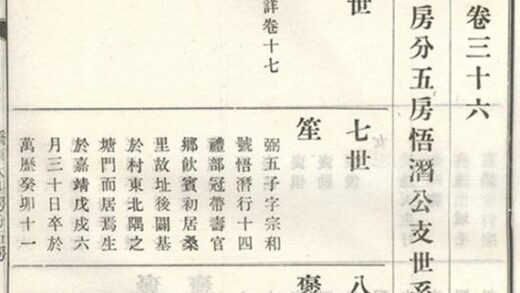 卷三十六
房分五房悟潛公支世系
世
詳卷十七
七世
笙
弼五子字宗和
號悟潛行十四
禮部冠帶壽官
鄉飲賓初居桑
里故址後闢基
於村東北隅之
塘門而居焉生
於嘉靖戊戌六
月三十日卒於
萬歷癸卯十一
八
褒